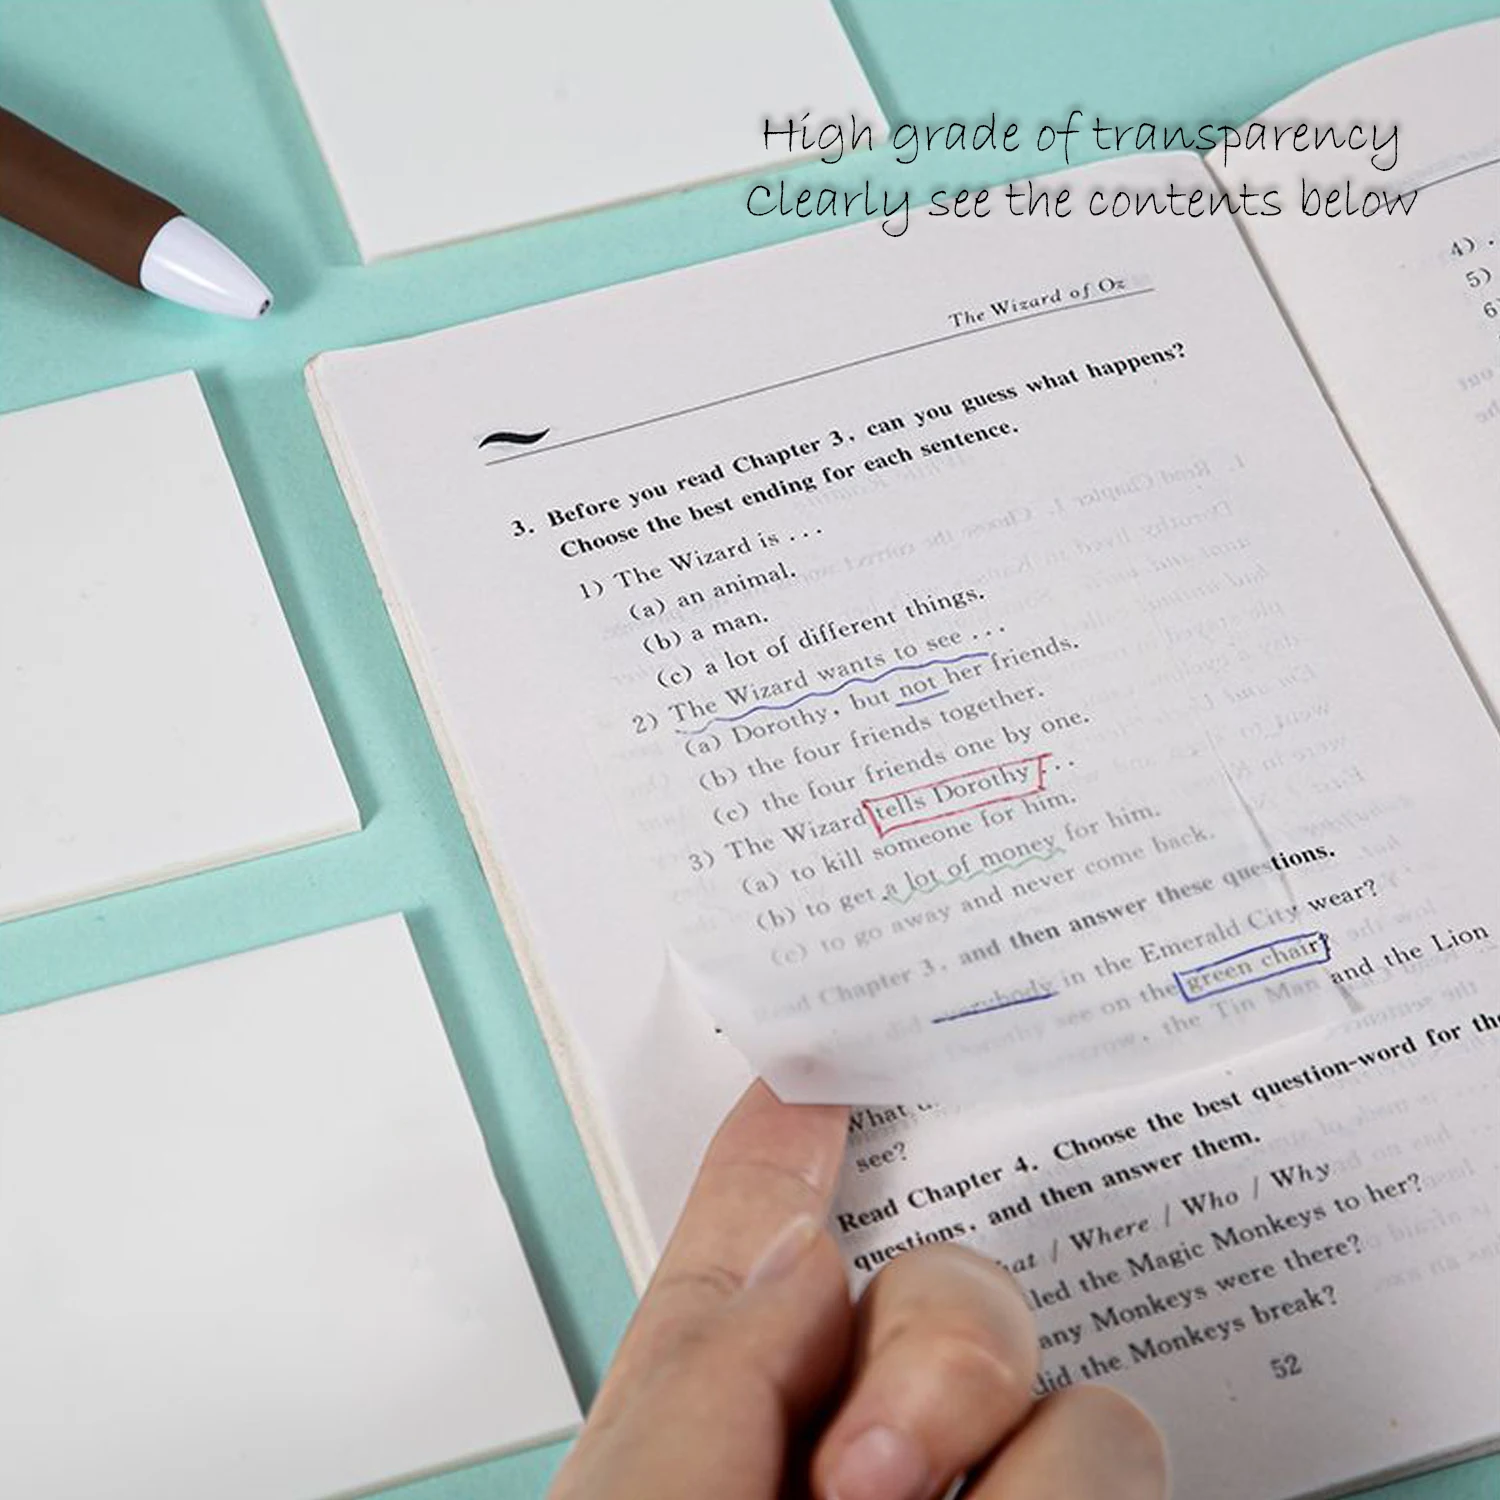 High grade of transparency
Clearly see the contents below
The Wizard of Oz
3. Before you read Chapter 3, can you guess what happens?
Choose the best ending for each sentence.
1) The Wizard is ...
(a) an animal.
(b) a man.
(c) a lot of different things.
2) The Wizard wants to see ...
(a) Dorothy, but not her friends.
(b) the four friends together.
(c) the four friends one by one.
3) The Wizard tells Dorothy ...
(a) to kill someone for him.
(b) to get a lot of money for him.
(c) to go away and never come back.
Chapter 3, and then answer these questions.
did everybody in the Emerald City wear?
see on the green chair
the Tin Man and the Lion
What
see?
Read Chapter 4. Choose the best question-word for the
questions, and then answer them.
/ Where / Who / Why
the Magic Monkeys to her?
Monkeys were there?
did the Monkeys break?
52
4)
5)